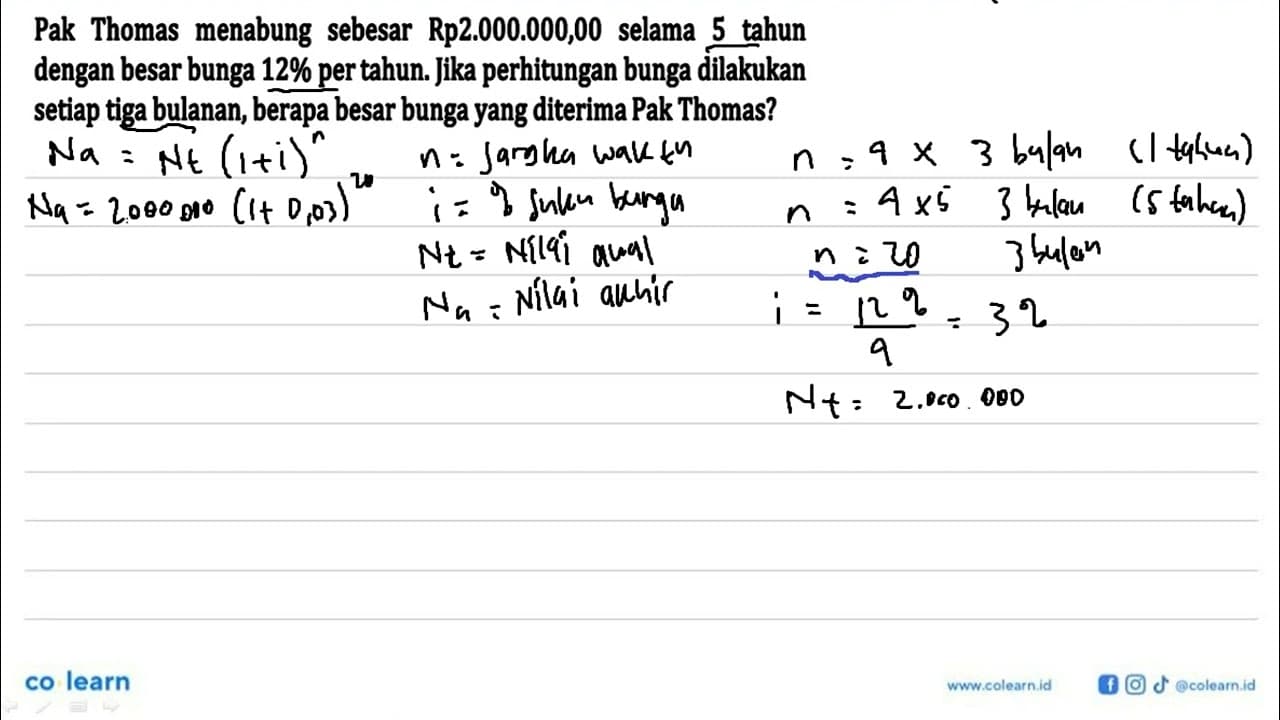 Pak Thomas menabung sebesar Rp2.000.000,00 selama 5 tahun
dengan besar bunga 12% per tahun. Jika perhitungan bunga dilakukan
setiap tiga bulanan, berapa besar bunga yang diterima Pak Thomas?
Na = Nt (1+i)^n
Na = 2.000.000 (1+0,03)^20
n = Jangka waktu
i = % suku bunga
Nt = Nilai awal
Na = Nilai akhir
n = 4 x 3 bulan (1 tahun)
n = 4 x 5 3 bulan (5 tahun)
n = 20 3 bulan
i = 12% / 4 = 3%
Nt = 2.000.000
co learn
www.colearn.id
@colearn.id